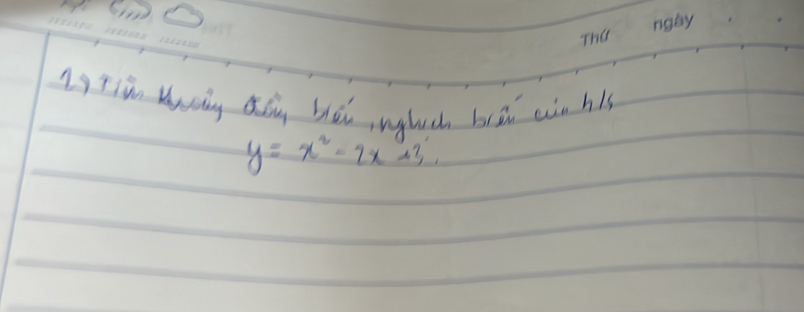 Thứ ngày
1, Tìm khoảng đồng biến, nghịch biến của h/s
y = x² - 2x + 3.